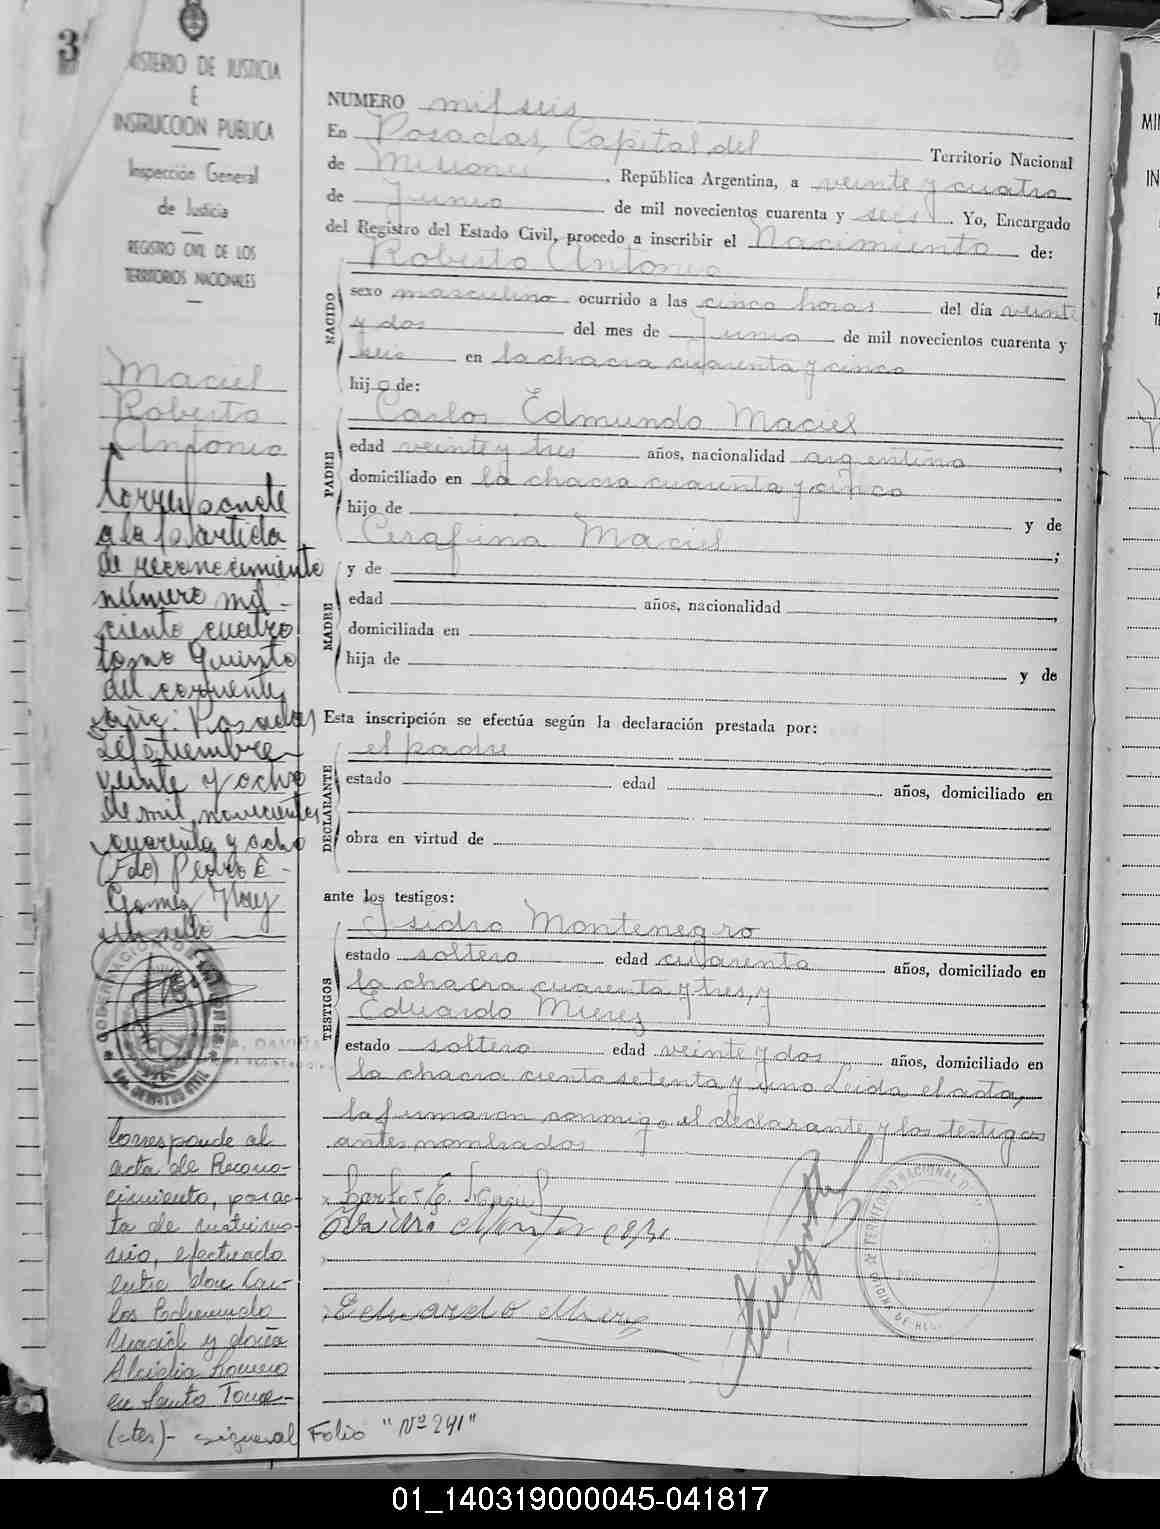 3
MINISTERIO DE JUSTICIA
E
INSTRUCCION PUBLICA
Inspección General
de Justicia
REGISTRO CIVIL DE LOS
TERRITORIOS NACIONALES
Maciel
Roberto
Antonio
Corresponde
a la partida
de reconocimiento
número mil
ciento cuatro
tomo Quinto
del corriente
año: Posadas
Setiembre
veinte y ocho
de mil novecientos
cuarenta y ocho
(Fdo) Pedro E.
Gomez Hay
un sello
Corresponde al
acta de Recono-
cimiento, por ac-
ta de matrimo-
nio, efectuado
entre don Car-
los Edmundo
Maciel y doña
Alcidia Romero
en Santo Tomé
(ctes)- sigue al Folio "Nº 241"
NUMERO mil seis
En Posadas, Capital del Territorio Nacional
de Misiones, República Argentina, a veinte y cuatro
de Junio de mil novecientos cuarenta y seis. Yo, Encargado
del Registro del Estado Civil, procedo a inscribir el Nacimiento de:
NACIDO
Roberto Antonio
sexo masculino ocurrido a las cinco horas del día veinte
y dos del mes de Junio de mil novecientos cuarenta y
seis en la chacra cuarenta y cinco
hijo de:
PADRE
Carlos Edmundo Maciel
edad veinte y tres años, nacionalidad argentino,
domiciliado en la chacra cuarenta y cinco
hijo de y de
Cerafina Maciel;
MADRE
y de
edad años, nacionalidad
domiciliada en
hija de y de
Esta inscripción se efectúa según la declaración prestada por:
DECLARANTE
el padre
estado edad años, domiciliado en
obra en virtud de
ante los testigos:
TESTIGOS
Isidro Montenegro
estado soltero edad cuarenta años, domiciliado en
la chacra cuarenta y tres, y
Eduardo Mierez
estado soltero edad veinte y dos años, domiciliado en
la chacra ciento setenta y uno Leida el acta,
la firmaron conmigo el declarante y los testigos
antes nombrados
Carlos E. Maciel
Eduardo Mierez
TERRITORIO NACIONAL D
01_140319000045-041817